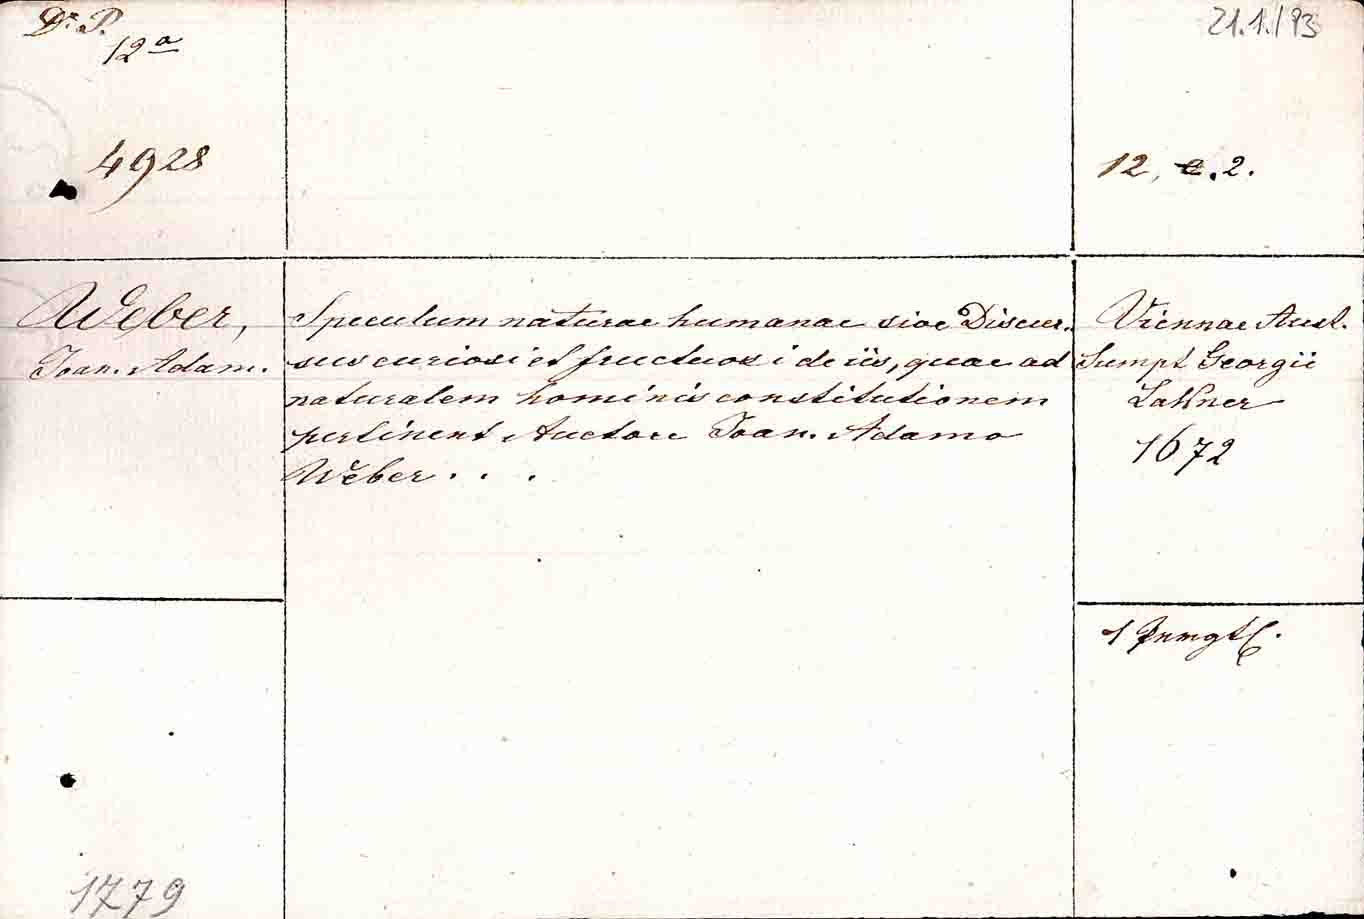 Dr. P.
12a
4928
21.1./93
12, e. 2.
Weber,
Joan. Adam.
Speculum naturae humanae sive Discur-
sus curiosi et fructuosi de iis, quae ad
naturalem hominis constitutionem
pertinent Auctore Joan. Adamo
Weber . . .
Viennae Aust.
Sumpt Georgii
Lakner
1672
1
1779